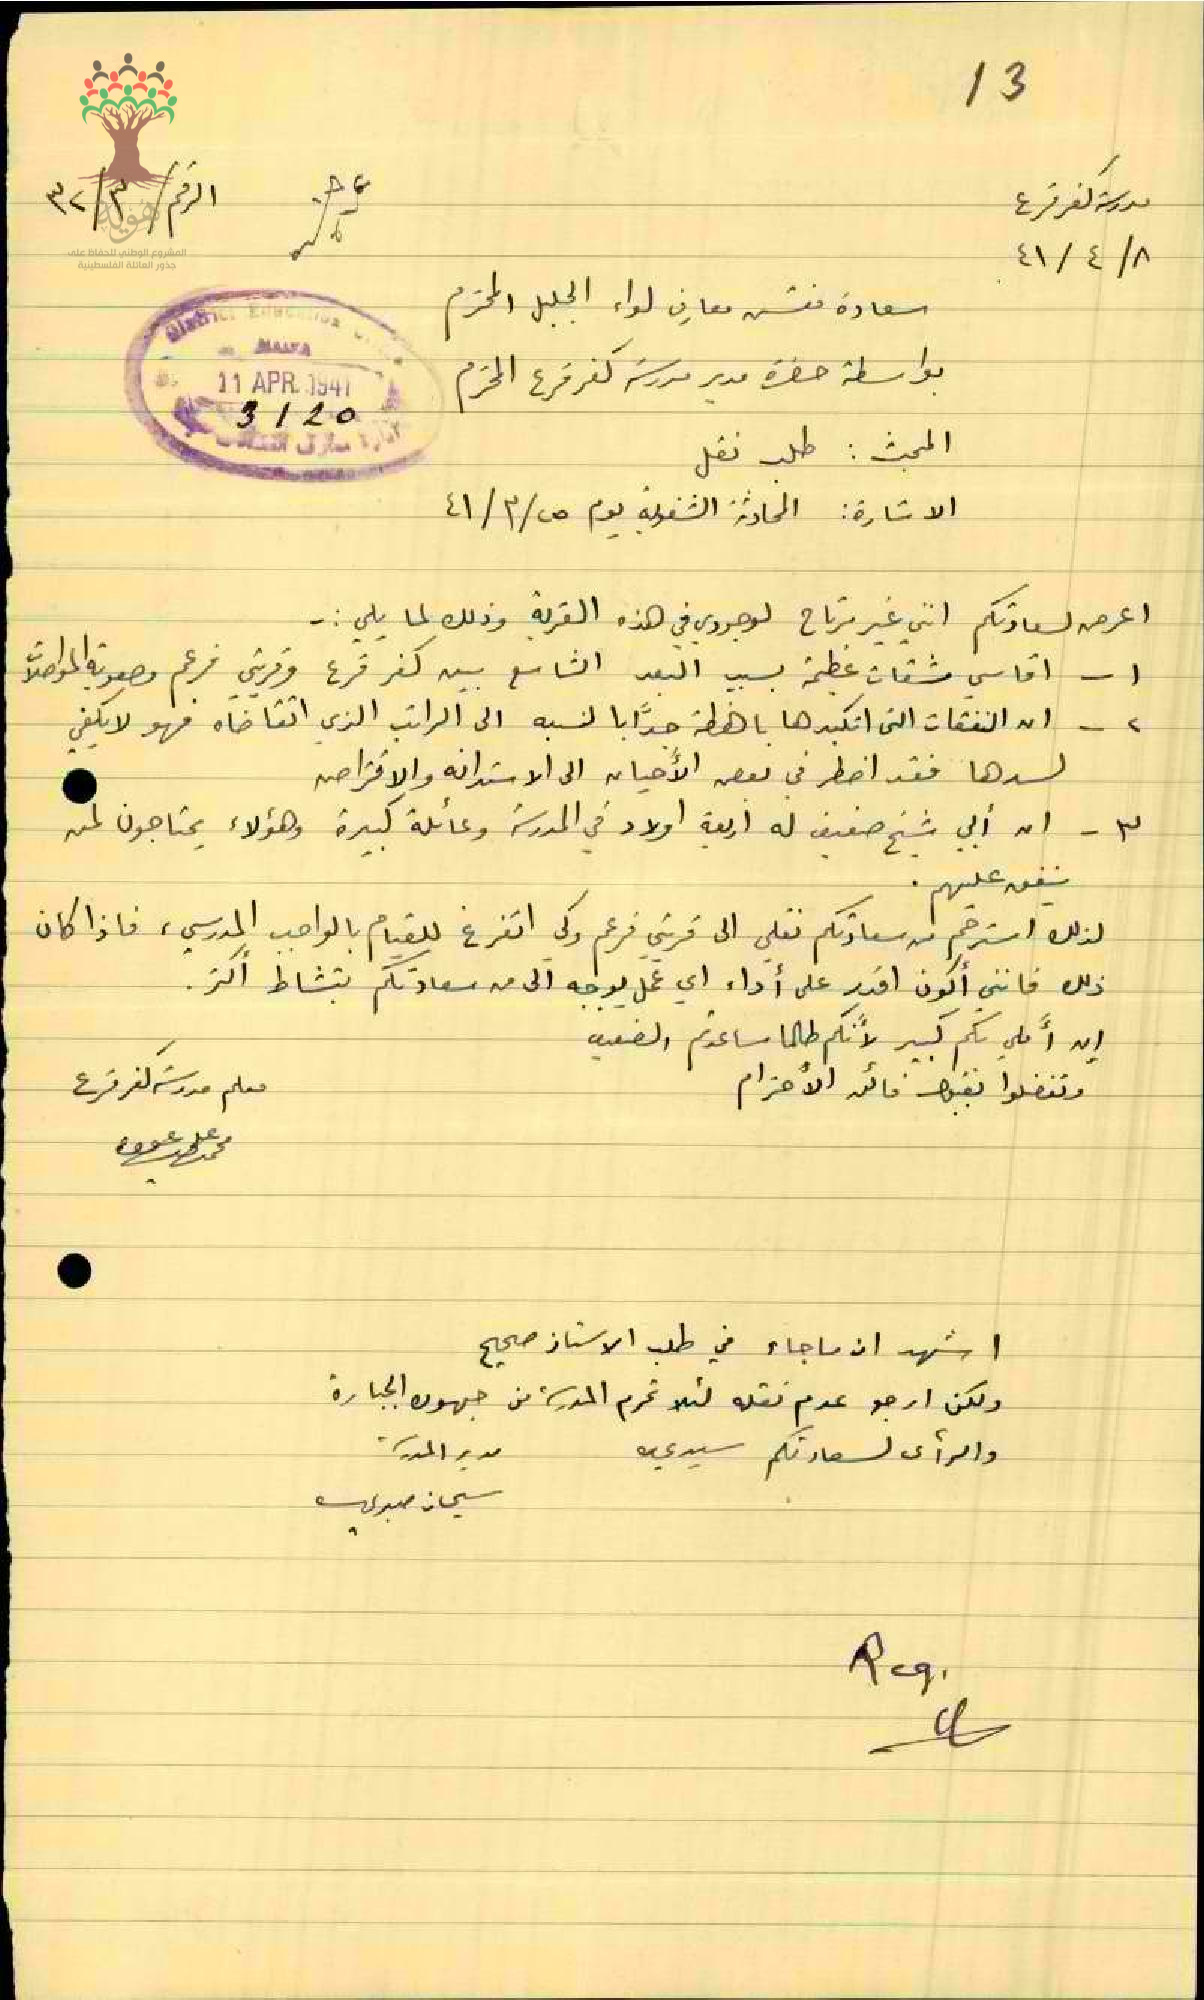 13
مدرسة كفر قرع
٤١/٤/٨
الرقم/٣/٣٢
هوية
المشروع الوطني للحفاظ على
جذور العائلة الفلسطينية
سعادة مفتش معارف لواء الجليل المحترم
بواسطة حضرة مدير مدرسة كفر قرع المحترم
District Education Office
HAIFA
11 APR. 1941
3120
ادارة معارف
المبحث : طلب نقل
الاشارة: المحادثة الشفوية يوم ٤١/٣/٢٥
اعرض لسعادتكم انني غير مرتاح لوجودي في هذه القرية وذلك لما يلي :-
١- اقاسي مشقات عظيمة بسبب البعد الشاسع بين كفر قرع وقريتي فرعم وصعوبة المواصلات
٢- ان النفقات التي اتكبدها باهظة جدًا بالنسبه الى الراتب الذي اتقاضاه فهو لا يكفي
لسدها فقد اضطر في بعض الأحيان الى الاستدانه والاقتراض
٣- ان أبي شيخ ضعيف له اربعة اولاد في المدرسة وعائلة كبيرة وهؤلاء يحتاجون لمن
ينفق عليهم .
لذلك استرحم من سعادتكم نقلي الى قريتي فرعم وكي اتفرغ للقيام بالواجب المدرسي ، فاذا كان
ذلك فانني أكون اقدر على أداء اي عمل يوجه الى من سعادتكم بنشاط أكثر .
ان أملي بكم كبير لأنكم طالما ساعدتم الضعيف
وتفضلوا بقبول فائق الأحترام
معلم مدرسة كفر قرع
محمد علي
اشهد ان ما جاء في طلب الاستاذ صحيح
ولكن ارجو عدم نقله لئلا تحرم المدرسة من جهوده الجبارة
والرأى لسعادتكم سيدي
مدير المدرسة
Reg.